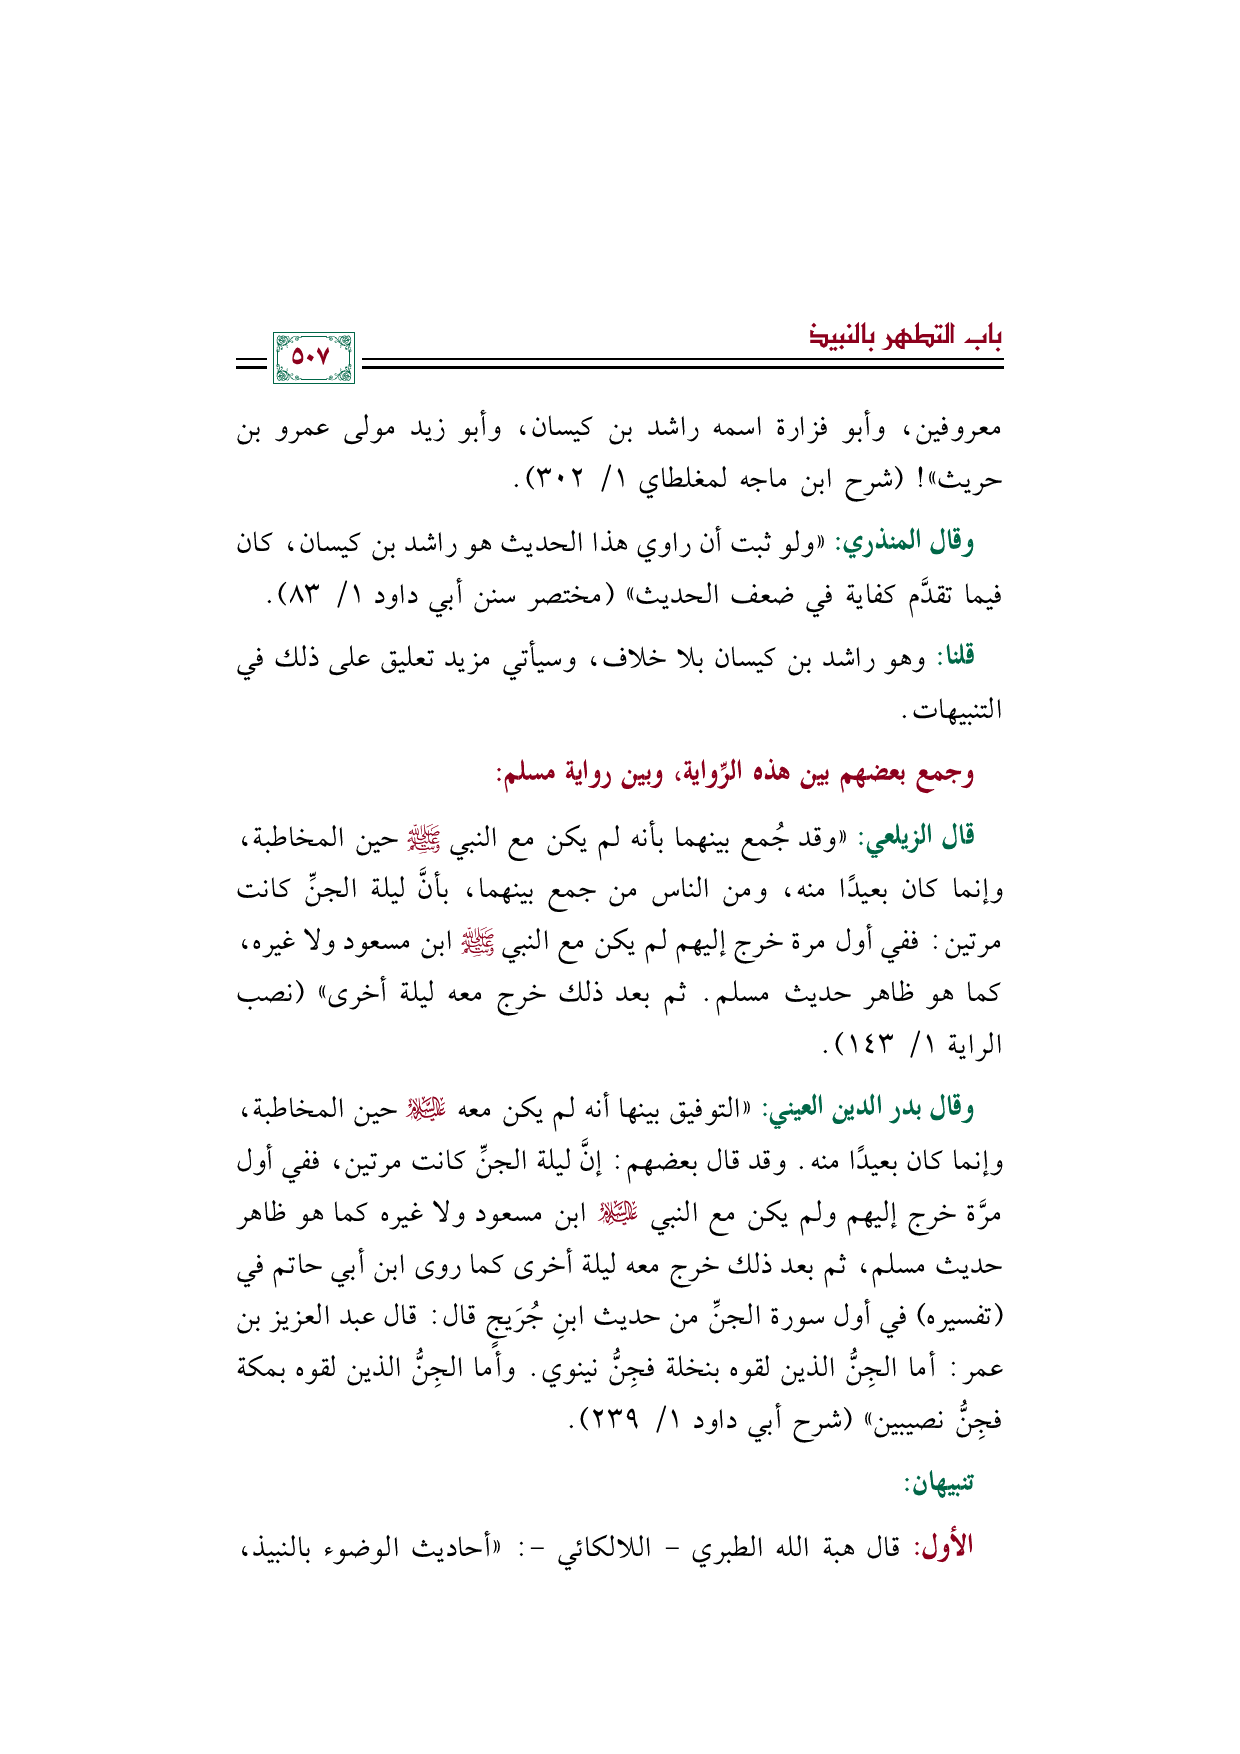 باب التطهر بالنبيذ
٥٠٧
معروفين، وأبو فزارة اسمه راشد بن كيسان، وأبو زيد مولى عمرو بن
حريث»! (شرح ابن ماجه لمغلطاي ١/ ٣٠٢).
وقال المنذري: «ولو ثبت أن راوي هذا الحديث هو راشد بن كيسان، كان
فيما تقدَّم كفاية في ضعف الحديث» (مختصر سنن أبي داود ١/ ٨٣).
قلنا: وهو راشد بن كيسان بلا خلاف، وسيأتي مزيد تعليق على ذلك في
التنبيهات.
وجمع بعضهم بين هذه الرِّواية، وبين رواية مسلم:
قال الزيلعي: «وقد جُمع بينهما بأنه لم يكن مع النبي ﷺ حين المخاطبة،
وإنما كان بعيدًا منه، ومن الناس من جمع بينهما، بأنَّ ليلة الجنِّ كانت
مرتين: ففي أول مرة خرج إليهم لم يكن مع النبي ﷺ ابن مسعود ولا غيره،
كما هو ظاهر حديث مسلم. ثم بعد ذلك خرج معه ليلة أخرى» (نصب
الراية ١/ ١٤٣).
وقال بدر الدين العيني: «التوفيق بينها أنه لم يكن معه عليه السلام حين المخاطبة،
وإنما كان بعيدًا منه. وقد قال بعضهم: إنَّ ليلة الجنِّ كانت مرتين، ففي أول
مرَّة خرج إليهم ولم يكن مع النبي عليه السلام ابن مسعود ولا غيره كما هو ظاهر
حديث مسلم، ثم بعد ذلك خرج معه ليلة أخرى كما روى ابن أبي حاتم في
(تفسيره) في أول سورة الجنِّ من حديث ابنِ جُرَيجٍ قال: قال عبد العزيز بن
عمر: أما الجِنُّ الذين لقوه بنخلة فجِنُّ نينوي. وأما الجِنُّ الذين لقوه بمكة
فجِنُّ نصيبين» (شرح أبي داود ١/ ٢٣٩).
تنبيهان:
الأول: قال هبة الله الطبري - اللالكائي -: «أحاديث الوضوء بالنبيذ،